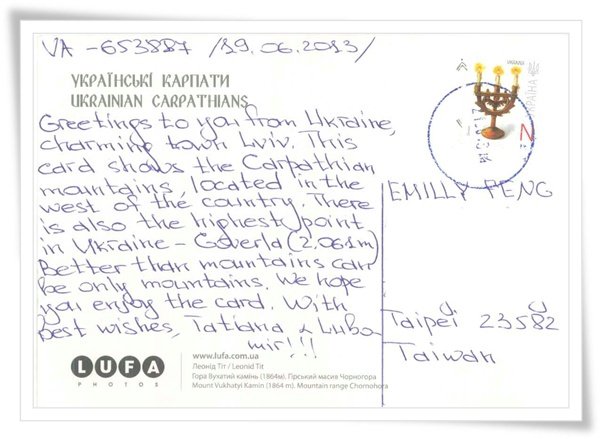 UA -653887 /19.06.2013/
УКРАЇНСЬКІ КАРПАТИ
UKRAINIAN CARPATHIANS
Greetings to you from Ukraine,
charming town Lviv. This
card shows the Carpathian
mountains, located in the
west of the country. There
is also the highest point
in Ukraine - Goverla (2.061m)
Better than mountains can
be only mountains. We hope
you enjoy the card. With
best wishes, Tatiana & Lubo
mir!!!
УКРАЇНА
N
EMILLY PENG
Taipei 23582
Taiwan
LUFA
PHOTOS
www.lufa.com.ua
Леонід Тіт / Leonid Tit
Гора Вухатий камінь (1864м), Гірський масив Чорногора
Mount Vukhatyi Kamin (1864 m), Mountain range Chornohora